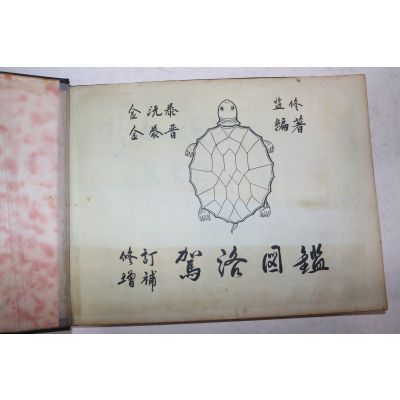 金沅泰 監修
金泰晋 編著
修訂
增補 駕洛図鑑